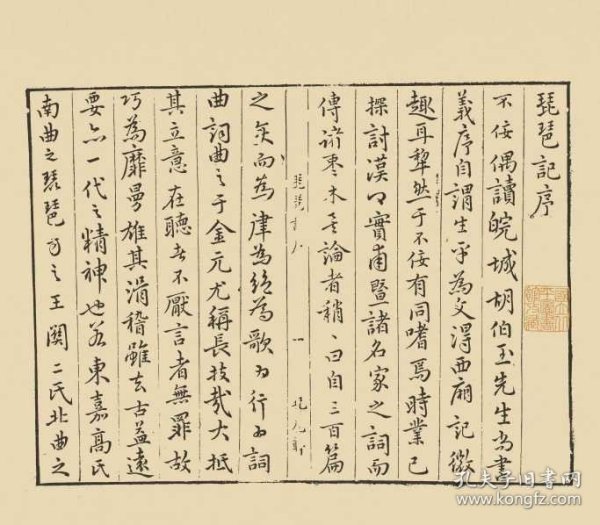 琵琶記序
不佞偶讀皖城胡伯玉先生尚書
義序自謂生平為文淂西廂記微
趣耳犂然于不佞有同嗜焉時業已
探討漢卿實甫暨諸名家之詞而
傳諸棗木矣論者稍〻曰自三百篇
琵琶 一
之 而為律為絕為歌為行為詞
曲詞曲之于金元尤稱長技哉大抵
其立意在聽者不厭言者無罪故
巧為靡曼雄其滑稽雖去古益遠
要亦一代之精神也若東嘉高氏
南曲之琵琶方之王關二氏北曲之
孔夫子旧书网
www.kongfz.com